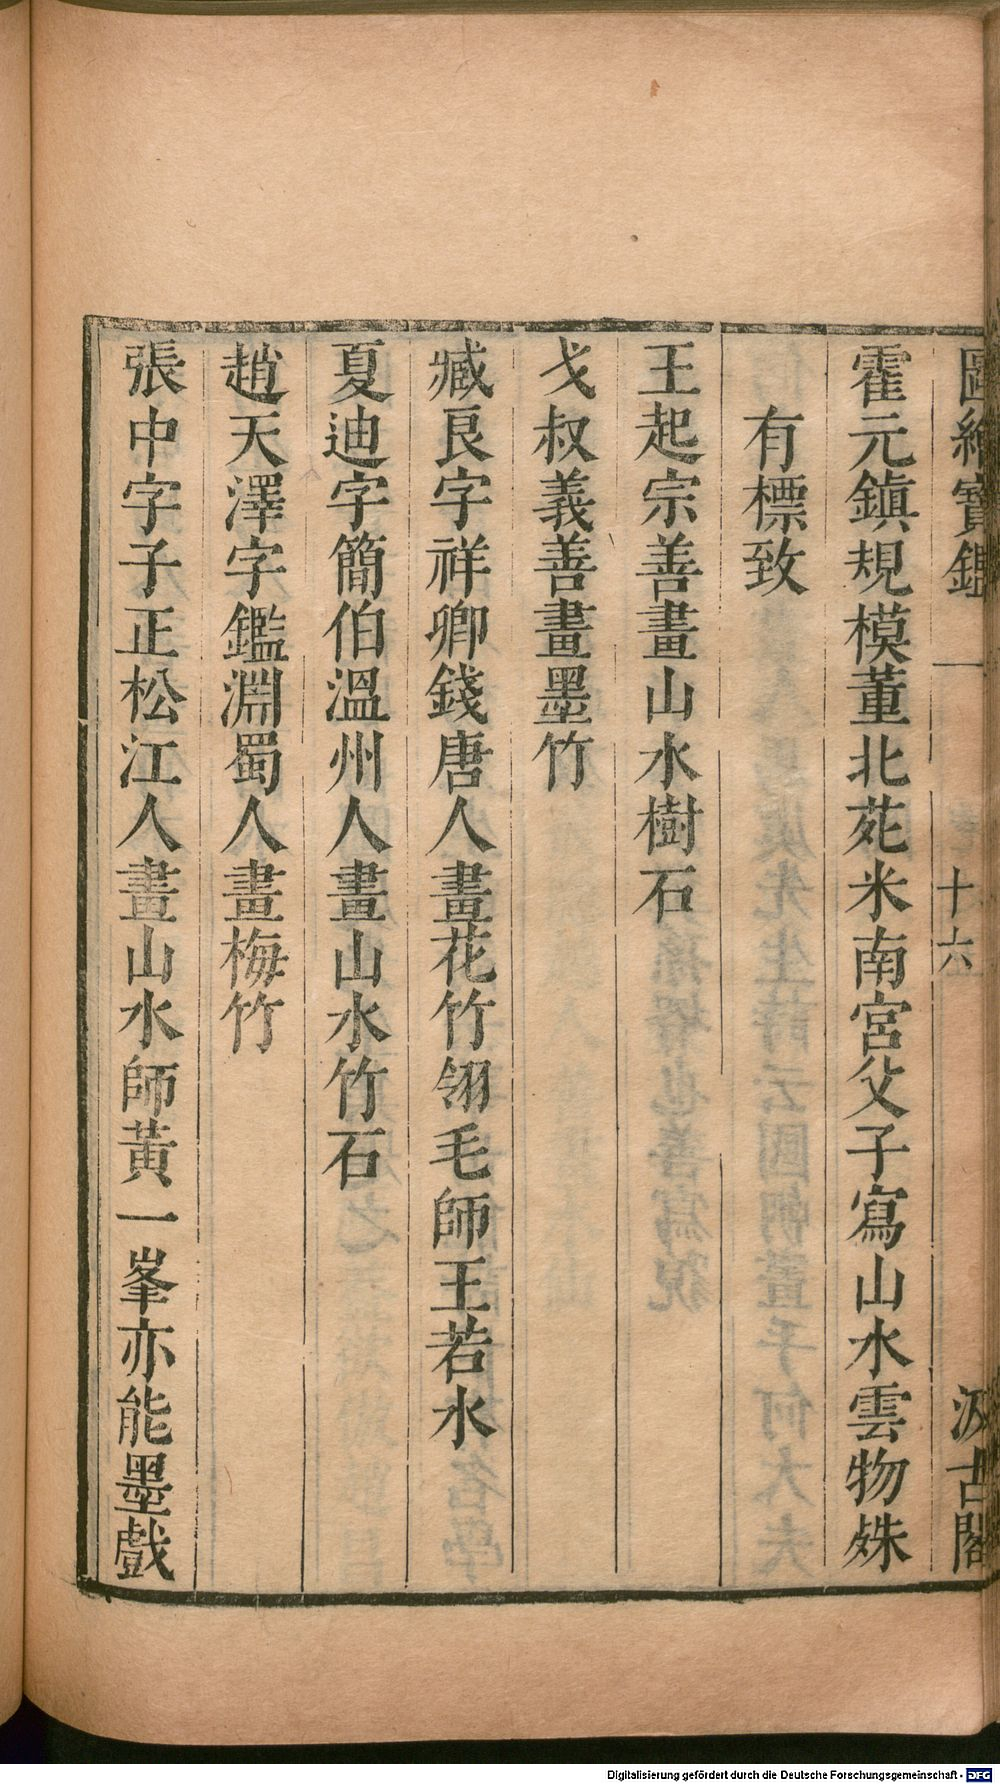 圖繪寶鑑 一 十六 汲古閣
霍元鎮規模董北苑米南宮父子寫山水雲物殊
有標致
王起宗善畫山水樹石
戈叔義善畫墨竹
臧良字祥卿錢唐人畫花竹翎毛師王若水
夏迪字簡伯溫州人畫山水竹石
趙天澤字鑑淵蜀人畫梅竹
張中字子正松江人畫山水師黃一峯亦能墨戲
Digitalisierung gefördert durch die Deutsche Forschungsgemeinschaft - DFG